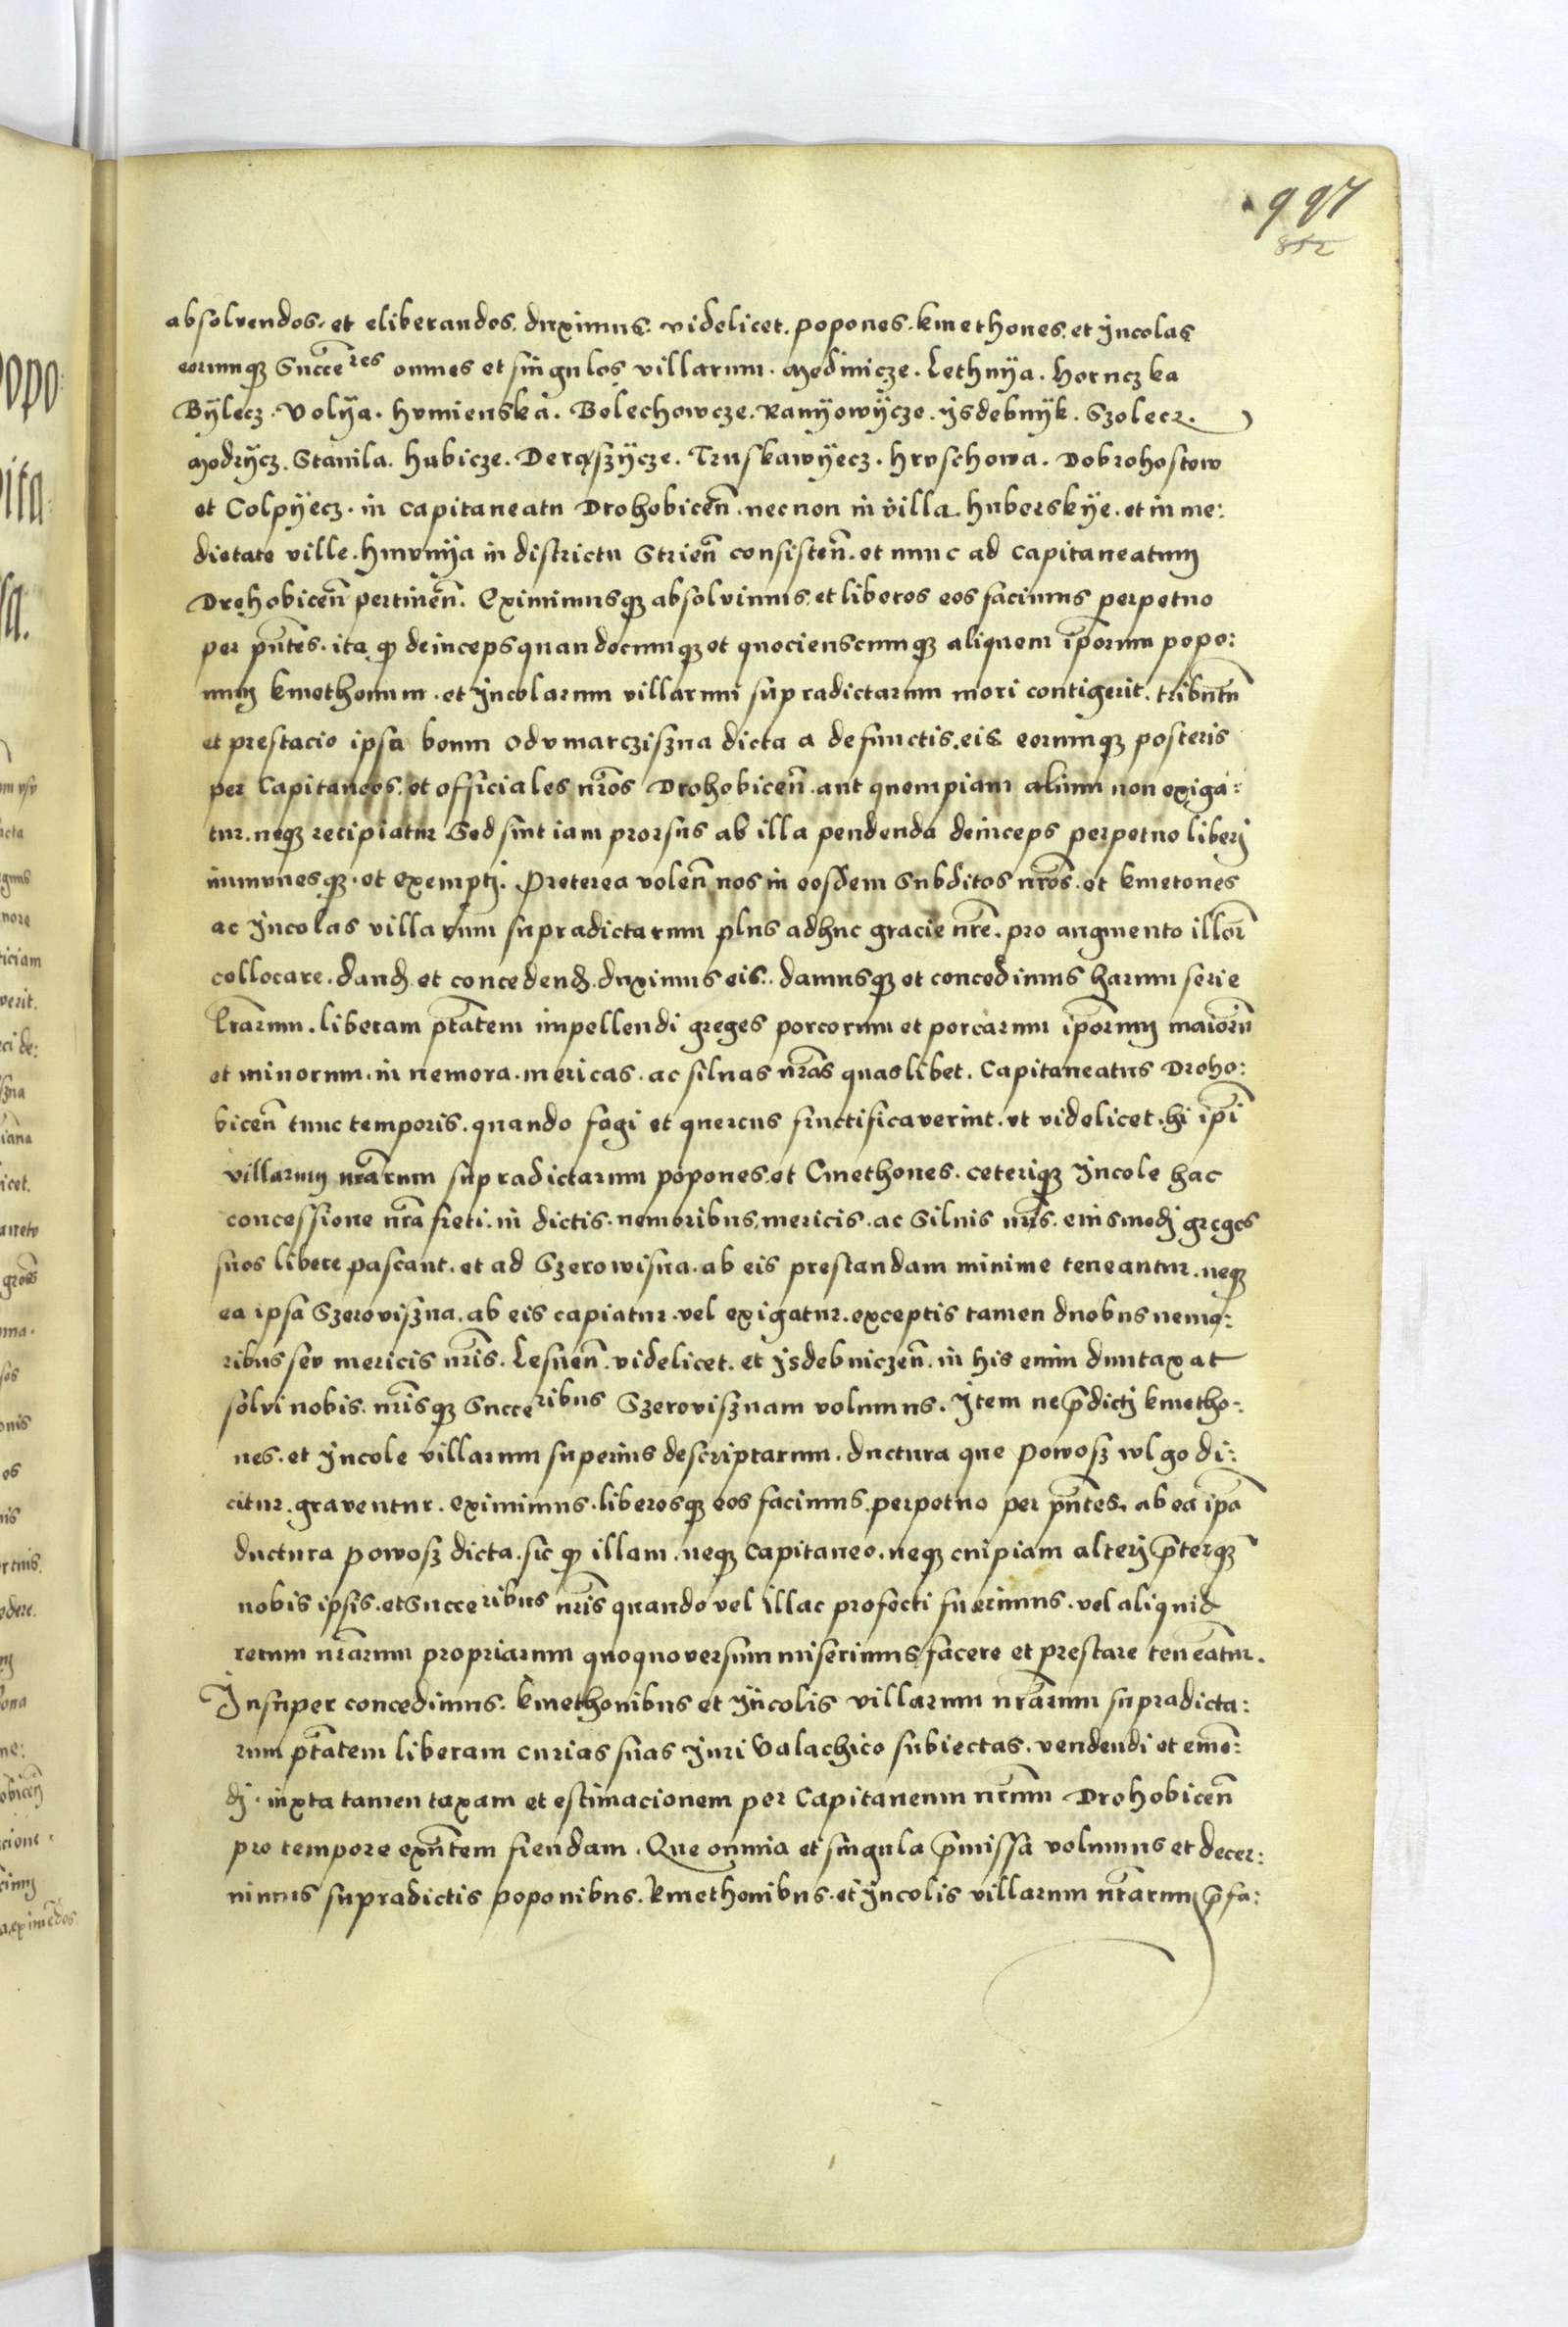 997
852
absolvendos. et eliberandos. duximus. videlicet. popones. kmethones. et Jncolas
eorumq₃ Succēres omnes et singulos villarum. Medinicze. Lethnÿa. Hornczka
Bÿlecz. Volÿa. Humienska. Bolechowcze. Ranÿowÿcze. ÿsdebnÿk. Szolecz.
Modrÿcz. Stanila. Hubicze. Deręszÿcze. Truskawÿecz. Hruschowa. Dobrohostow
et Colpÿecz. in capitaneatu Drohobiceñ. necnon in villa. Huborskÿe. et in me:
dietate ville. Hnvnÿa in districtu Strieñ consisteñ. et nunc ad capitaneatum
Drohobiceñ pertineñ. Eximimusq₃ absolvimus. et liberos eos facimus perpetuo
per pn̄tes. ita q̄ deinceps quandocumq₃ et quocienscumq₃ aliquem ip̄orum popo:
num kmethonum. et Jncolarum villarum supradictarum mori contigerit. tributū
et prestacio ipsa boum odvmarcziszna dicta a defunctis. eis eorumq₃ posteris
per Capitaneos. et officiales nr̄os Drohobiceñ. aut quempiam alium non exiga:
tur. neq₃ recipiatur Sed sint iam prorsus ab illa pendenda deinceps perpetuo liberj
immunesq₃. et exemptj. Preterea voleñ nos in eosdem Subditos nr̄os. et kmetones
ac Jncolas villarum supradictarum plus adhuc gracie nr̄e. pro augmento illor̄
collocare. dand̄ et concedend̄. duximus eis.. damusq₃ et concedimus harum serie
lr̄arum. liberam ptāatem impellendi greges porcorum et porcarum ip̄orum maiorū
et minorum. in nemora. mericas. ac siluas nr̄as quaslibet. Capitaneatus Droho:
biceñ tunc temporis. quando fagi et quercus fructificaverint. vt videlicet. hi ip̄i
villarum nr̄arum supradictarum popones. et Cmethones. ceteriq₃ Jncole hac
concessione nr̄a freti. in dictis. nemoribus. mericis. ac Siluis nr̄is. eiusmodj greges
suos libere pascant. et ad Szerowisna. ab eis prestandam minime teneantur. neq₃
ea ipsa Szeroviszna. ab eis capiatur. vel exigatur. exceptis tamen duobus nemo:
ribus sev mericis nr̄is. Lesneñ. videlicet. et Jsdebniczeñ. in his enim duntaxat
solvi nobis. nr̄isq₃ Succeribus Szerovisznam volumus. Jtem ne p̄dictj kmetho:
nes. et Jncole villarum superius descriptarum. ductura que Powosz wlgo di:
citur. graventur. eximimus. liberosq₃ eos facimus perpetuo per pn̄tes. ab ea ip̄a
ductura powosz dicta. sic q̄ illam. neq₃ capitaneo. neq₃ cuipiam alterj p̄terq₃
nobis ipsis. et Succeribus nr̄is quando vel illac profecti fuerimus. vel aliquid
rerum nr̄arum propriarum quoquoversum miserimus facere et prestare teneātur.
Jnsuper concedimus. kmethonibus et Jncolis villarum nr̄arum supradicta:
rum ptāatem liberam curias suas Juri Valachico subiectas. vendendi et emē:
dj. iuxta tamen taxam et estimacionem per Capitaneum nr̄um Drohobiceñ
pro tempore exn̄tem fiendam. Que omnia et singula p̄missa volumus et decer:
nimus supradictis poponibus. kmethonibus. et Jncolis villarum nr̄arum p̄fa: